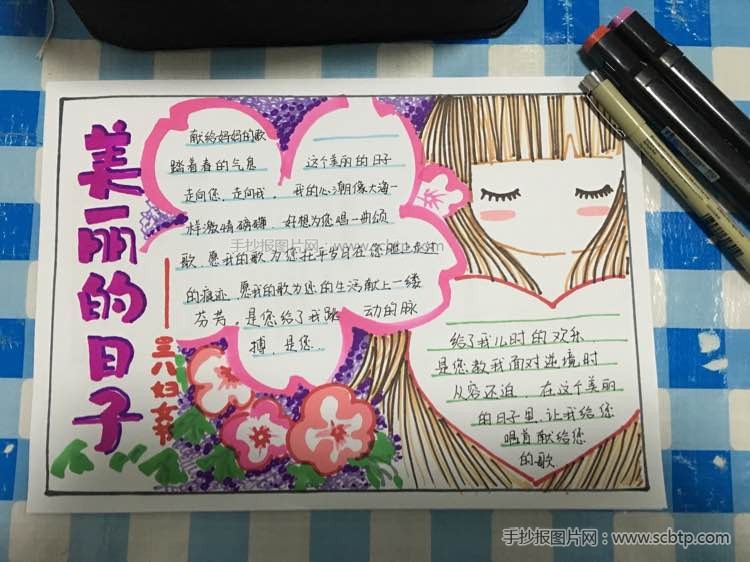 美丽的日子
三八妇女节
献给妈妈的歌
踏着春的气息 这个美丽的日子
走向您,走向我。 我的心潮像大海一
样激情磅礴 好想为您唱一曲颂
歌.愿我的歌为您抚平岁月在您脸上走过
的痕迹.愿我的歌为您的生活献上一缕
芬芳,是您给了我跳 动的脉
搏,是您
给了我儿时的欢乐
是您教我面对逆境时
从容还迫.在这个美丽
的日子里.让我给您
唱首献给您
的歌.
手抄报图片网:www.scbtp.com
手抄报图片网:www.scbtp.com